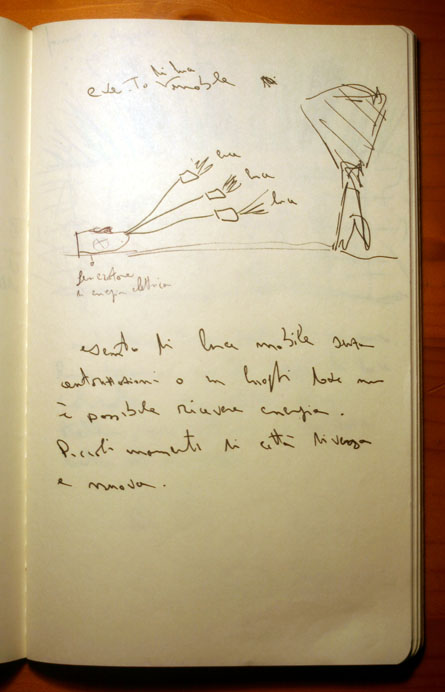 di luce
evento mobile
luce
luce
luce
generatore
di energia elettrica
evento di luce mobile senza
o in luoghi dove non
è possibile ricevere energia.
Piccoli momenti di città diversa
e nuova.